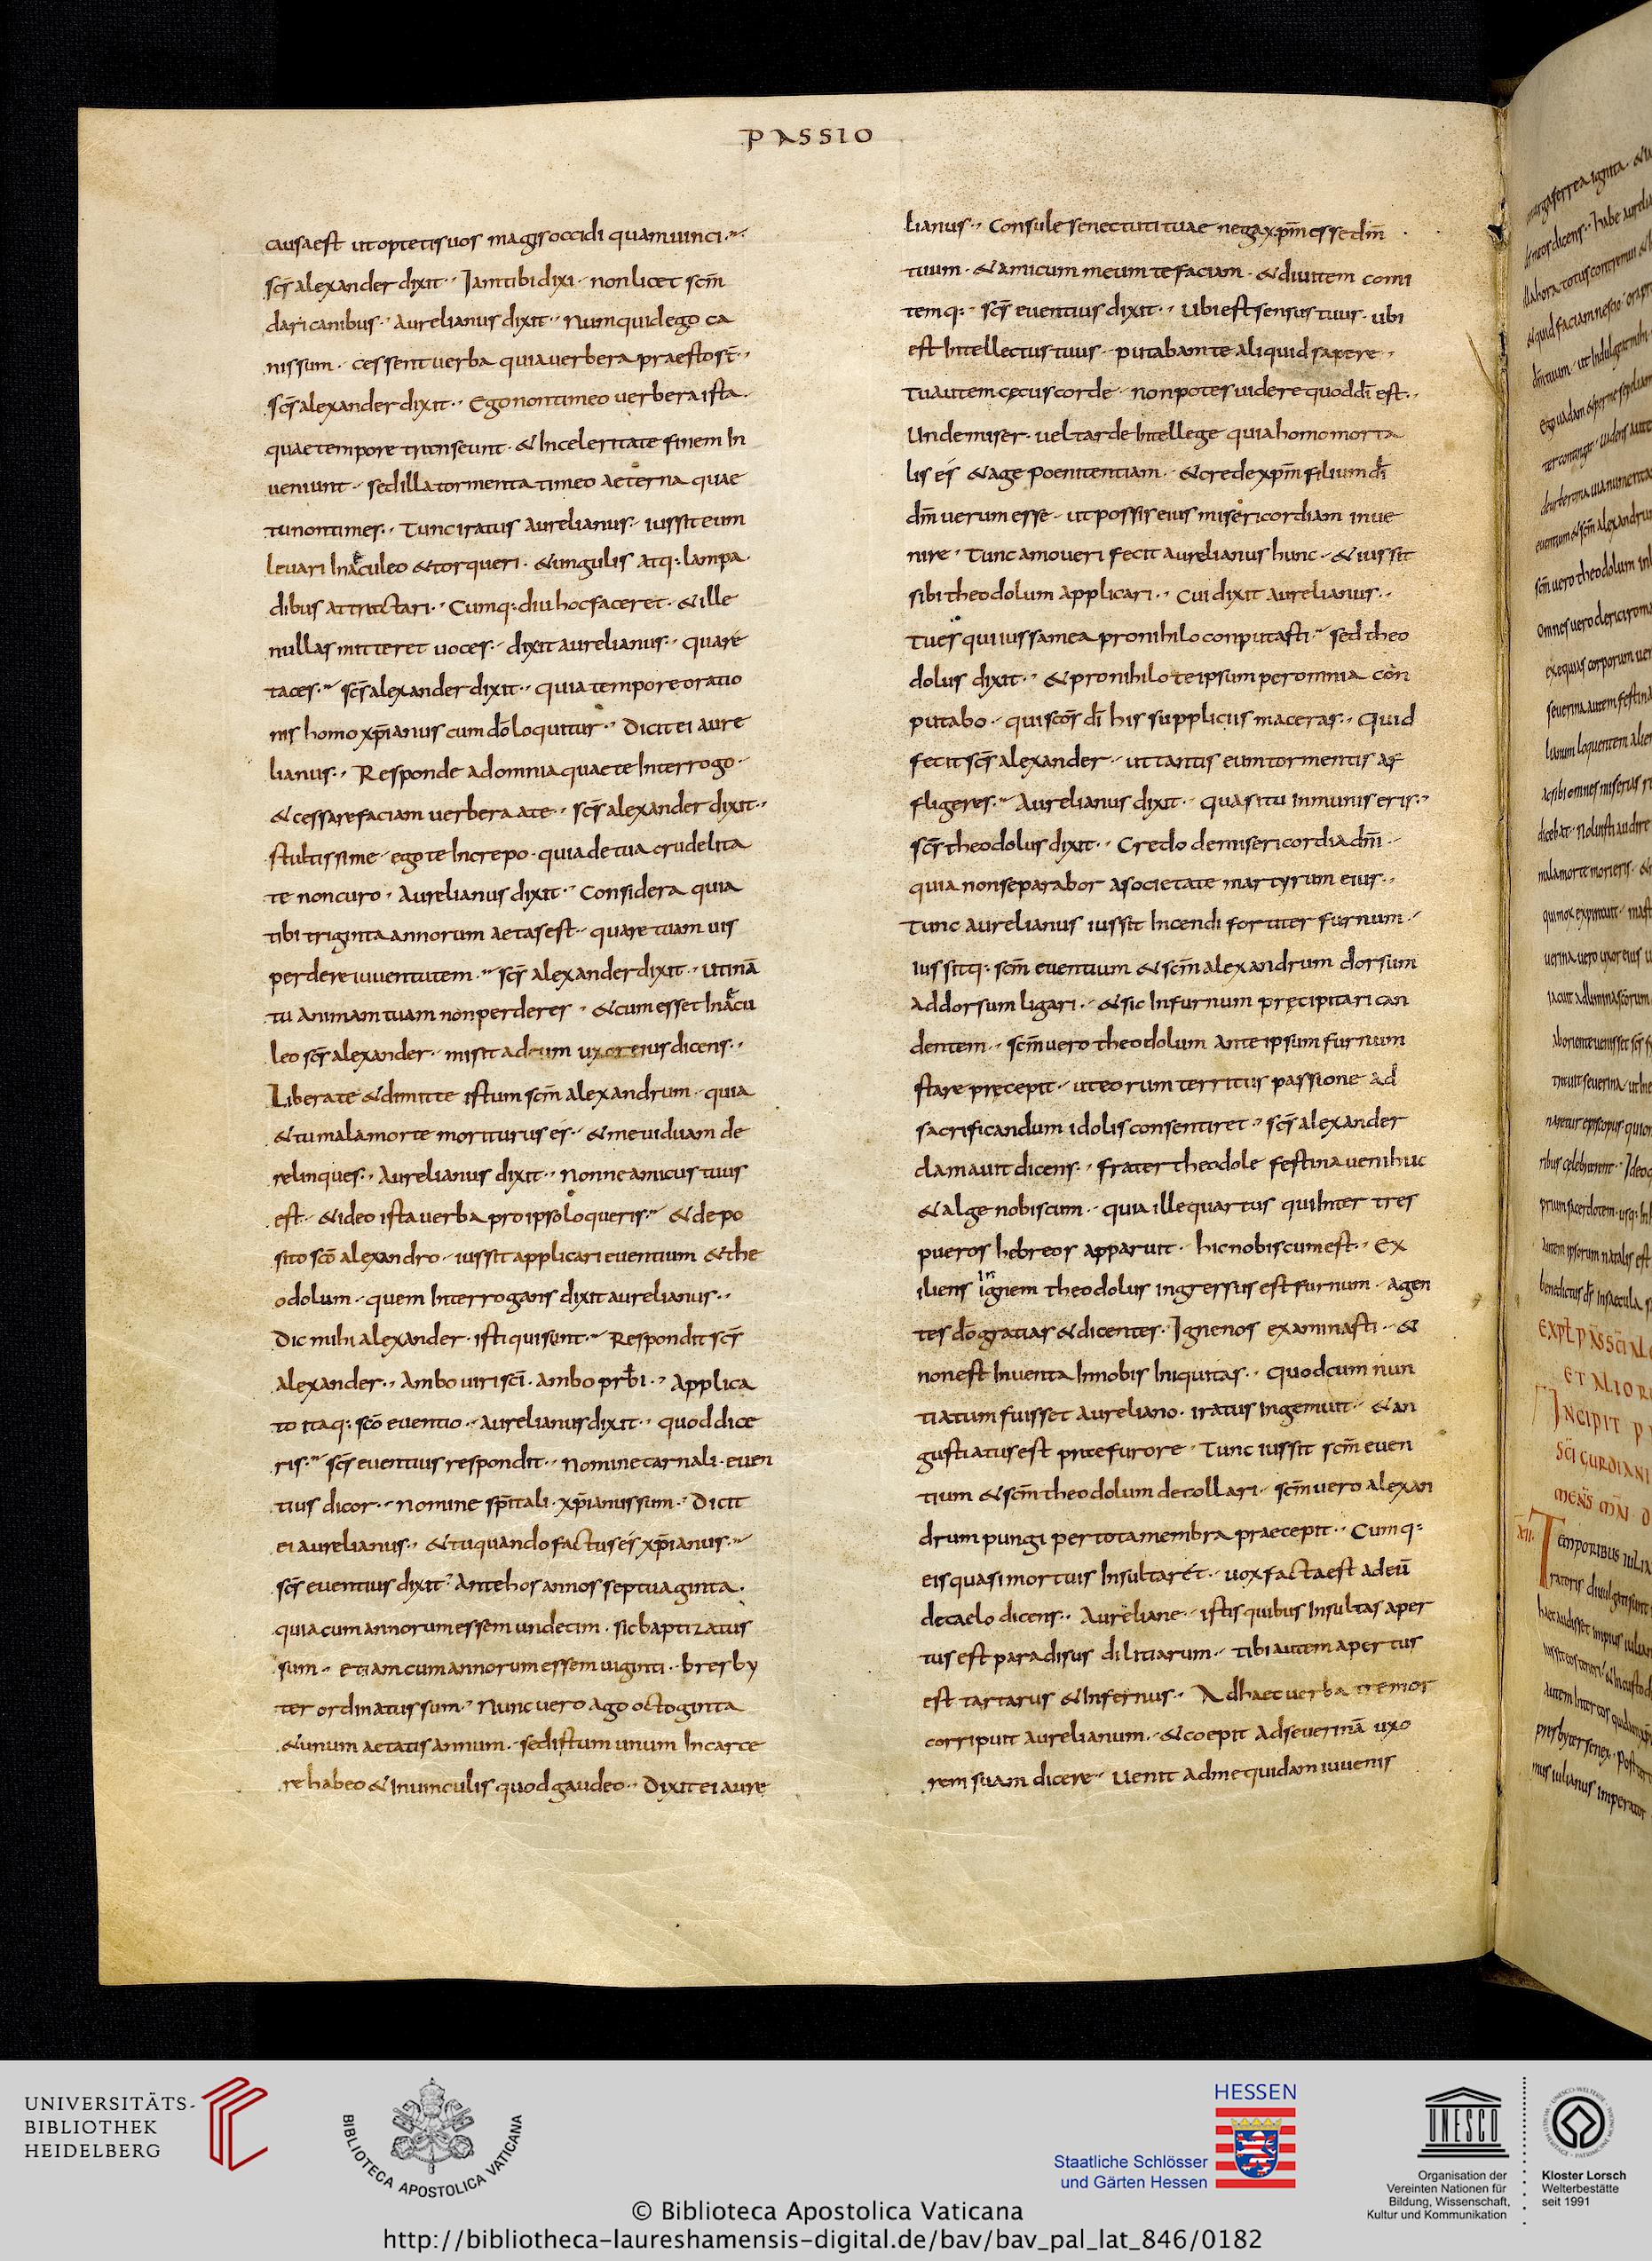 PASSIO
causa est ut optetis uos magis occidi quam uinci.
scs̄ alexander dixit. Iam tibi dixi. non licet scm̄
dari canibus. Aurelianus dixit. Numquid ego ca
nis sum. cessent uerba quia uerbera praesto st̄.
scs̄ alexander dixit. Ego non timeo uerbera ista.
quae tempore transeunt. & In celeritate finem In
ueniunt. sed illa tormenta timeo aeterna quae
tu non times. Tunc iratus aurelianus. iussit eum
leuari In aculeo & torqueri. & ungulis atq: lampa
dibus attractari. Cumq: diu hoc faceret. & ille
nullas mitteret uoces. dixit aurelianus. quare
taces. scs̄ alexander dixit. quia tempore oratio
nis homo xp̄ianus cum dō loquitur. Dicit ei aure
lianus. Responde ad omnia quae te Interrogo.
& cessare faciam uerbera a te. scs̄ alexander dixit.
stultissime. ego te Increpo. quia de tua crudelita
te non curo. Aurelianus dixit. Considera quia
tibi triginta annorum aetas est. quare tuam uis
perdere iuuentutem. scs̄ alexander dixit. utinā
tu animam tuam non perderes. & cum esset In acu
leo scs̄ alexander. misit ad eum uxor eius dicens.
Liberate & dimitte istum scm̄ alexandrum. quia
& tu mala morte moriturus es. & me uiduam de
relinques. Aurelianus dixit. Nonne amicus tuus
est. & ideo ista uerba pro ipso loqueris. & depo
sito scō alexandro. iussit applicari euentium & the
odolum. quem Interrogans dixit aurelianus.
Dic mihi alexander. isti qui sunt. Respondit scs̄
alexander. Ambo uiri scī. ambo prb̄i. Applica
to itaq: scō euentio. Aurelianus dixit. quod dice
ris. scs̄ euentius respondit. Nomine carnali. euen
tius dicor. Nomine sp̄itali. xp̄ianus sum. Dicit
ei aurelianus. & tu quando factus es xp̄ianus.
scs̄ euentius dixit. Ante hos annos septuaginta.
quia cum annorum essem undecim. sic baptizatus
sum. etiam cum annorum essem uiginti. bresby
ter ordinatus sum. Nunc uero ago octoginta
& unum aetatis annum. sed istum unum In carce
re habeo & In uinculis quod gaudeo. Dixit ei aure
lianus. Consule senectuti tuae nega xp̄m esse dm̄
tuum. & amicum meum te faciam. & diuitem comi
temq:. scs̄ euentius dixit. Ubi est sensus tuus. ubi
est Intellectus tuus. putabam te aliquid sapere.
Tu autem cęcus corde. non potes uidere quod dī est.
Unde miser. uel tarde Intellege quia homo morta
lis es & age poenitentiam. & crede xp̄m filium dī
dm̄ uerum esse. ut possis eius misericordiam inue
nire. Tunc amoueri fecit aurelianus hunc. & iussit
sibi theodolum applicari. Cui dixit aurelianus.
Tu es qui iussa mea pro nihilo conputasti. sed theo
dolus dixit. & pro nihilo te ipsum per omnia con
putabo. qui scōs dī his suppliciis maceras. quid
fecit scs̄ alexander. ut tantis eum tormentis af
fligeres. Aurelianus dixit. quasi tu inmunis eris.
scs̄ theodolus dixit. Credo de misericordia dn̄i.
quia non separabor a societate martyrum eius.
Tunc aurelianus iussit Incendi fortiter furnum.
iussitq: scm̄ euentium & scm̄ alexandrum dorsum
ad dorsum ligari. & sic In furnum pręcipitari can
dentem. scm̄ uero theodolum ante ipsum furnum
stare pręcepit. ut eorum territus passione ad
sacrificandum idolis consentiret. scs̄ alexander
clamauit dicens. frater theodole festina ueni huc
& alge nobiscum. quia ille quartus qui Inter tres
pueros hebreos apparuit. hic nobiscum est. Ex
iliens in ignem theodolus ingressus est furnum. agen
tes dō gratias & dicentes. Igne nos examinasti. &
non est Inuenta In nobis Iniquitas. Quod cum nun
tiatum fuisset aureliano. iratus ingemuit. & an
gustiatus est prae furore. Tunc iussit scm̄ euen
tium & scm̄ theodolum decollari. scm̄ uero alexan
drum pungi per tota membra praecepit. Cumq:
eis quasi mortuis Insultaret. uox facta est ad eū
de caelo dicens. Aureliane. istis quibus Insultas aper
tus est paradisus dilitiarum. tibi autem apertus
est tartarus & Infernus. Ad haec uerba tremor
corripuit aurelianum. & coepit ad seuerinā uxo
rem suam dicere. Uenit ad me quidam iuuenis
EXPL PASS SCI AL
ET ALIOR
INCIPIT P
SCI GURDIANI
XII. Temporibus iulia
UNIVERSITÄTS-
BIBLIOTHEK
HEIDELBERG
BIBLIOTECA APOSTOLICA VATICANA
HESSEN
Staatliche Schlösser
und Gärten Hessen
UNESCO
Organisation der
Vereinten Nationen für
Bildung, Wissenschaft,
Kultur und Kommunikation
Kloster Lorsch
Welterbestätte
seit 1991
© Biblioteca Apostolica Vaticana
http://bibliotheca-laureshamensis-digital.de/bav/bav_pal_lat_846/0182